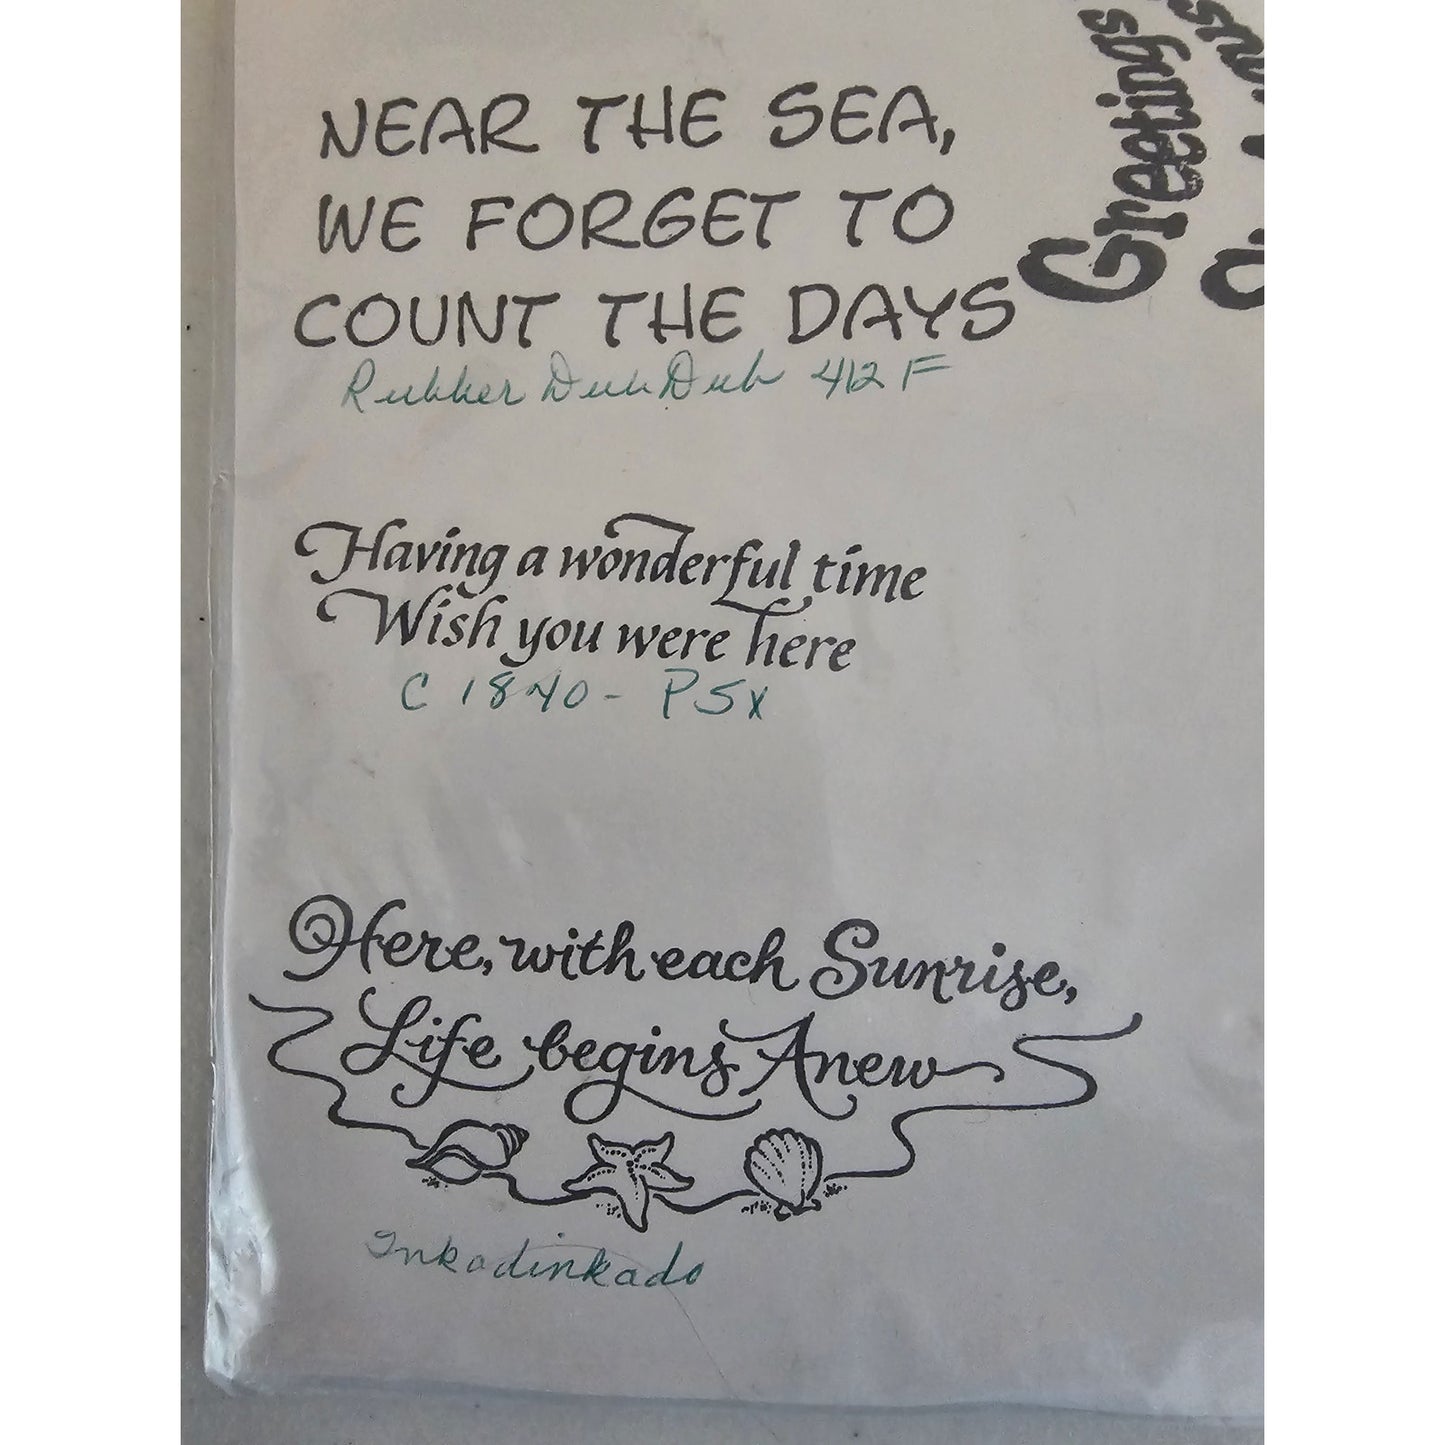 NEAR THE SEA,
WE FORGET TO
COUNT THE DAYS
Rubber Dub Dub 412 F
Having a wonderful time
Wish you were here
C 1840 - PSX
Here, with each Sunrise,
Life begins Anew
Inkadinkado
Greetings